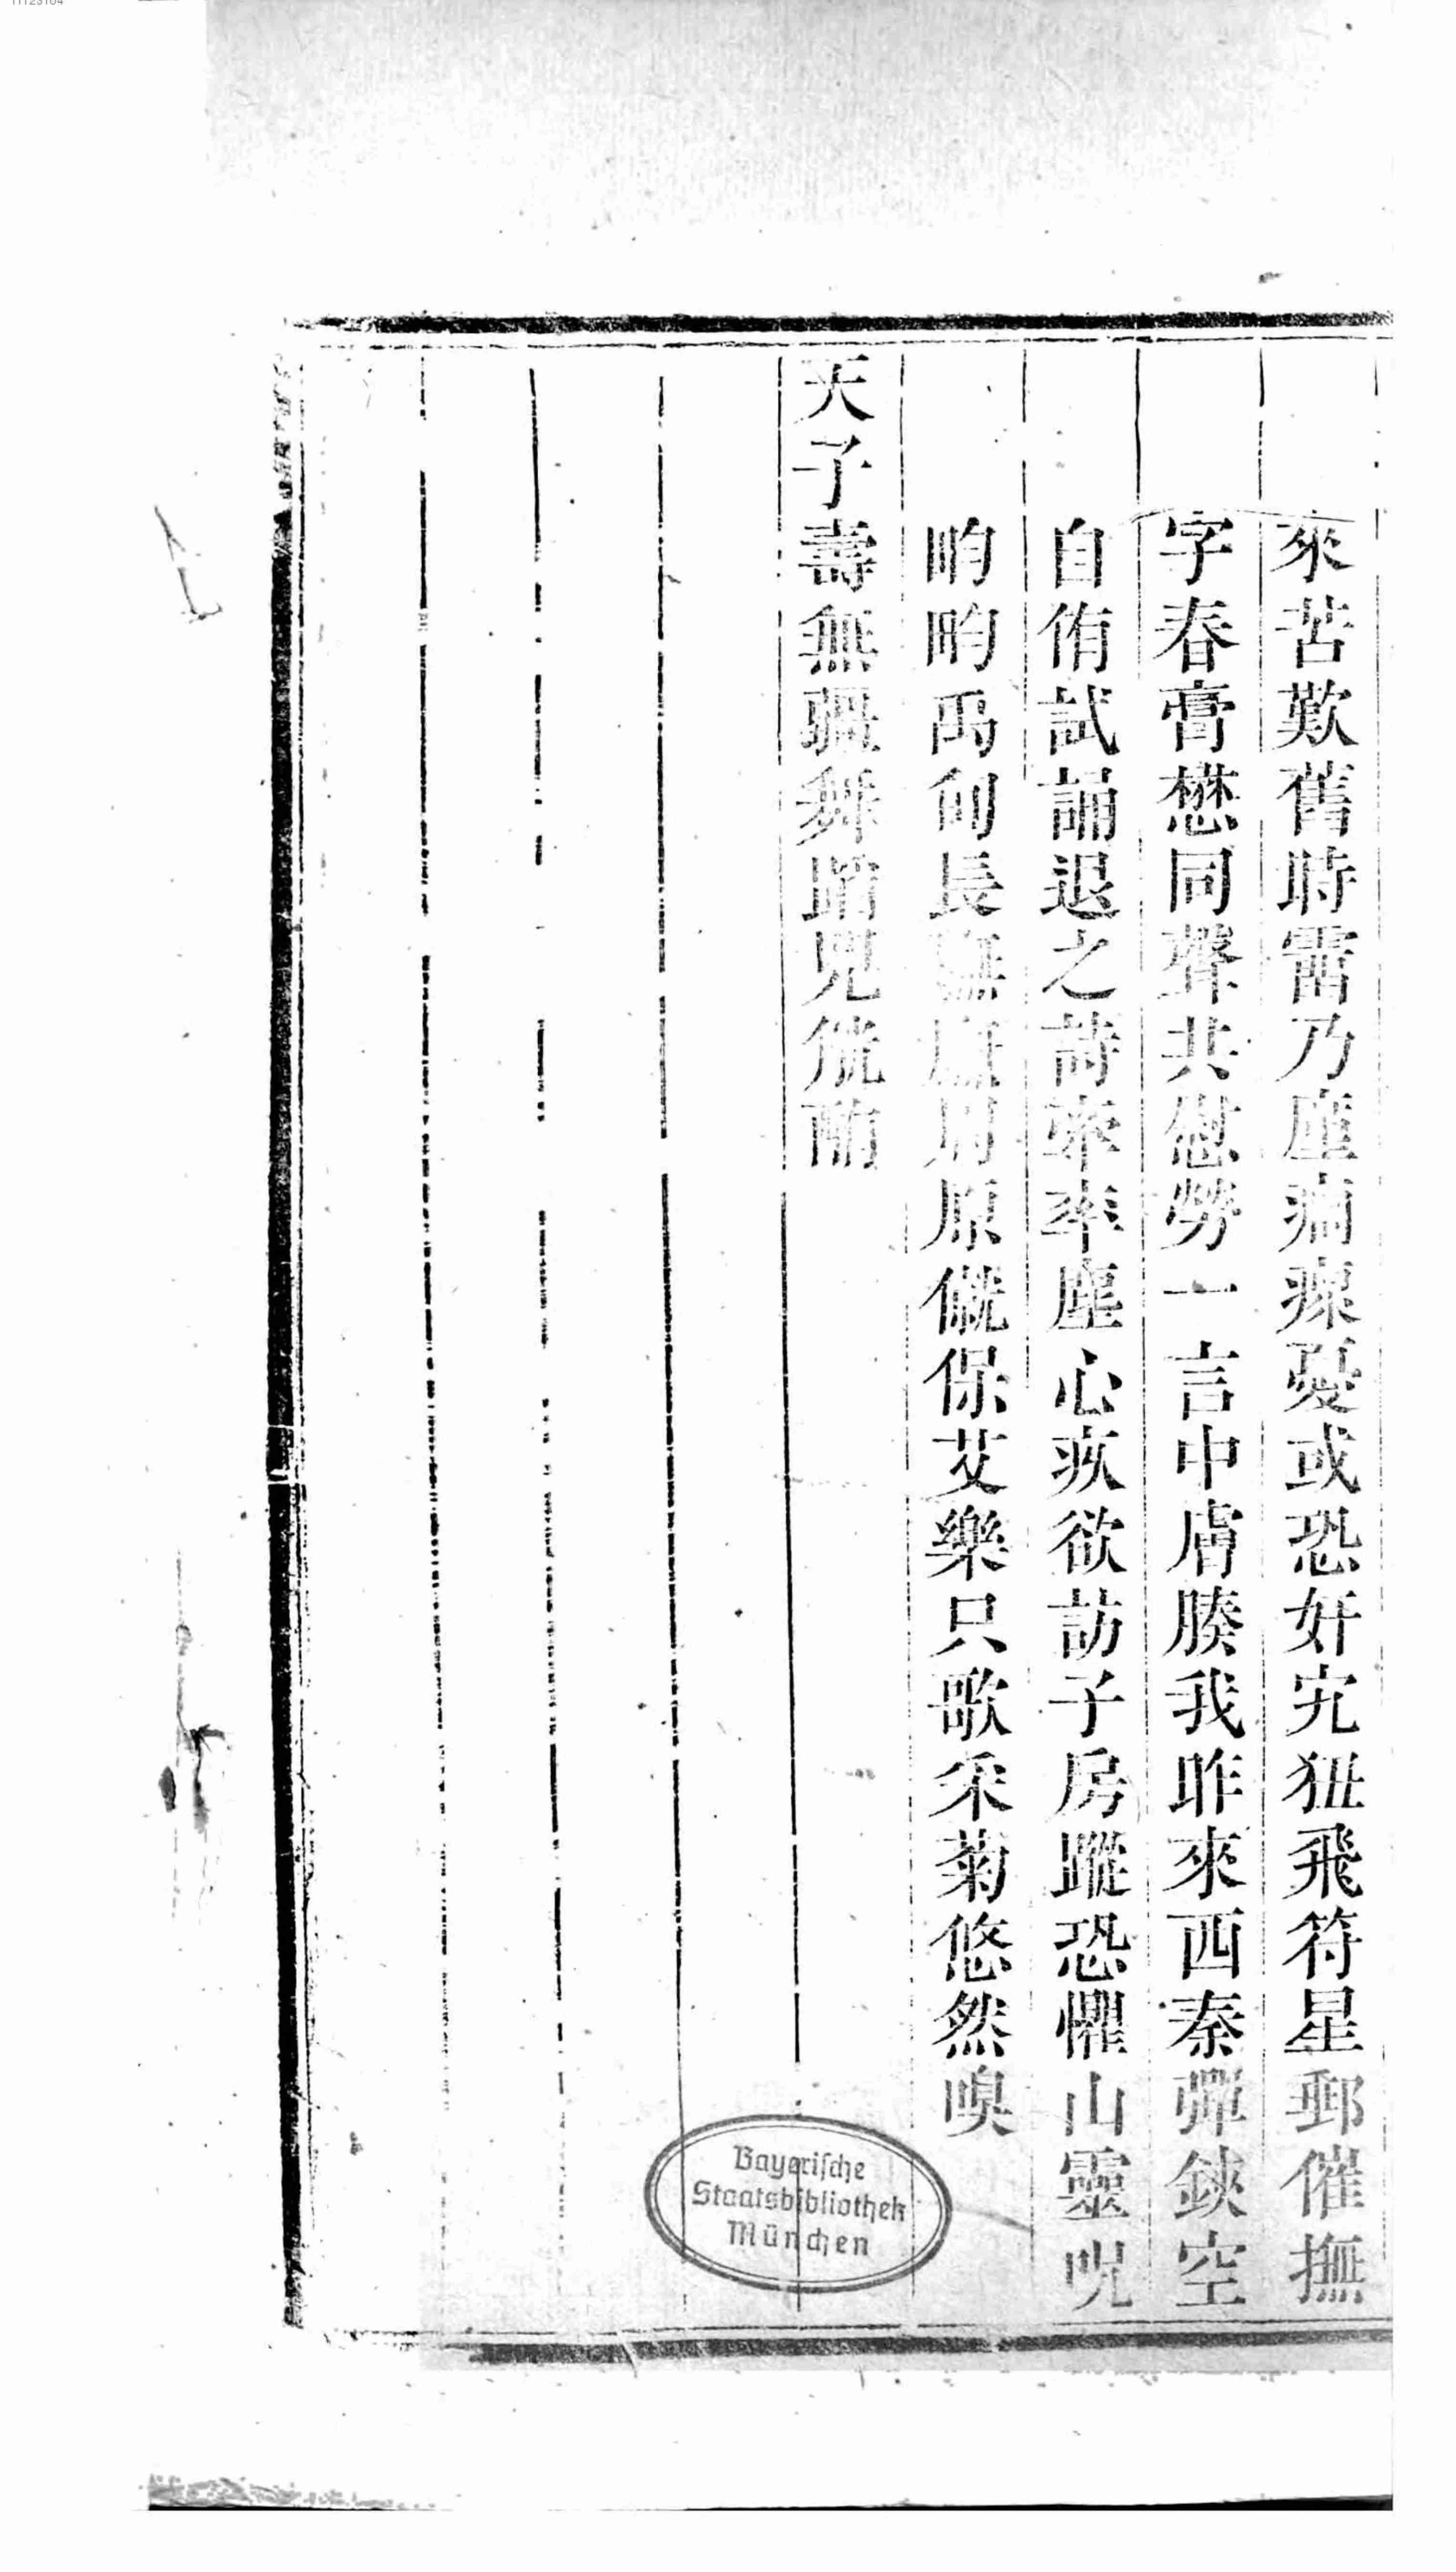 來苦歎舊時雷乃廑痌瘝憂或恐奸宄狃飛符星郵催撫
字春膏懋同聲共慰勞一言中膚腠我昨來西秦彈鋏空
自侑試誦退之詩牽率塵心疚欲訪子房蹤恐懼山靈呪
畇畇禹甸長膴膴周原僦保艾樂只歌采菊悠然嗅
天子壽無疆舞蹈兕觥酭
Bayerische
Staatsbibliothek
München